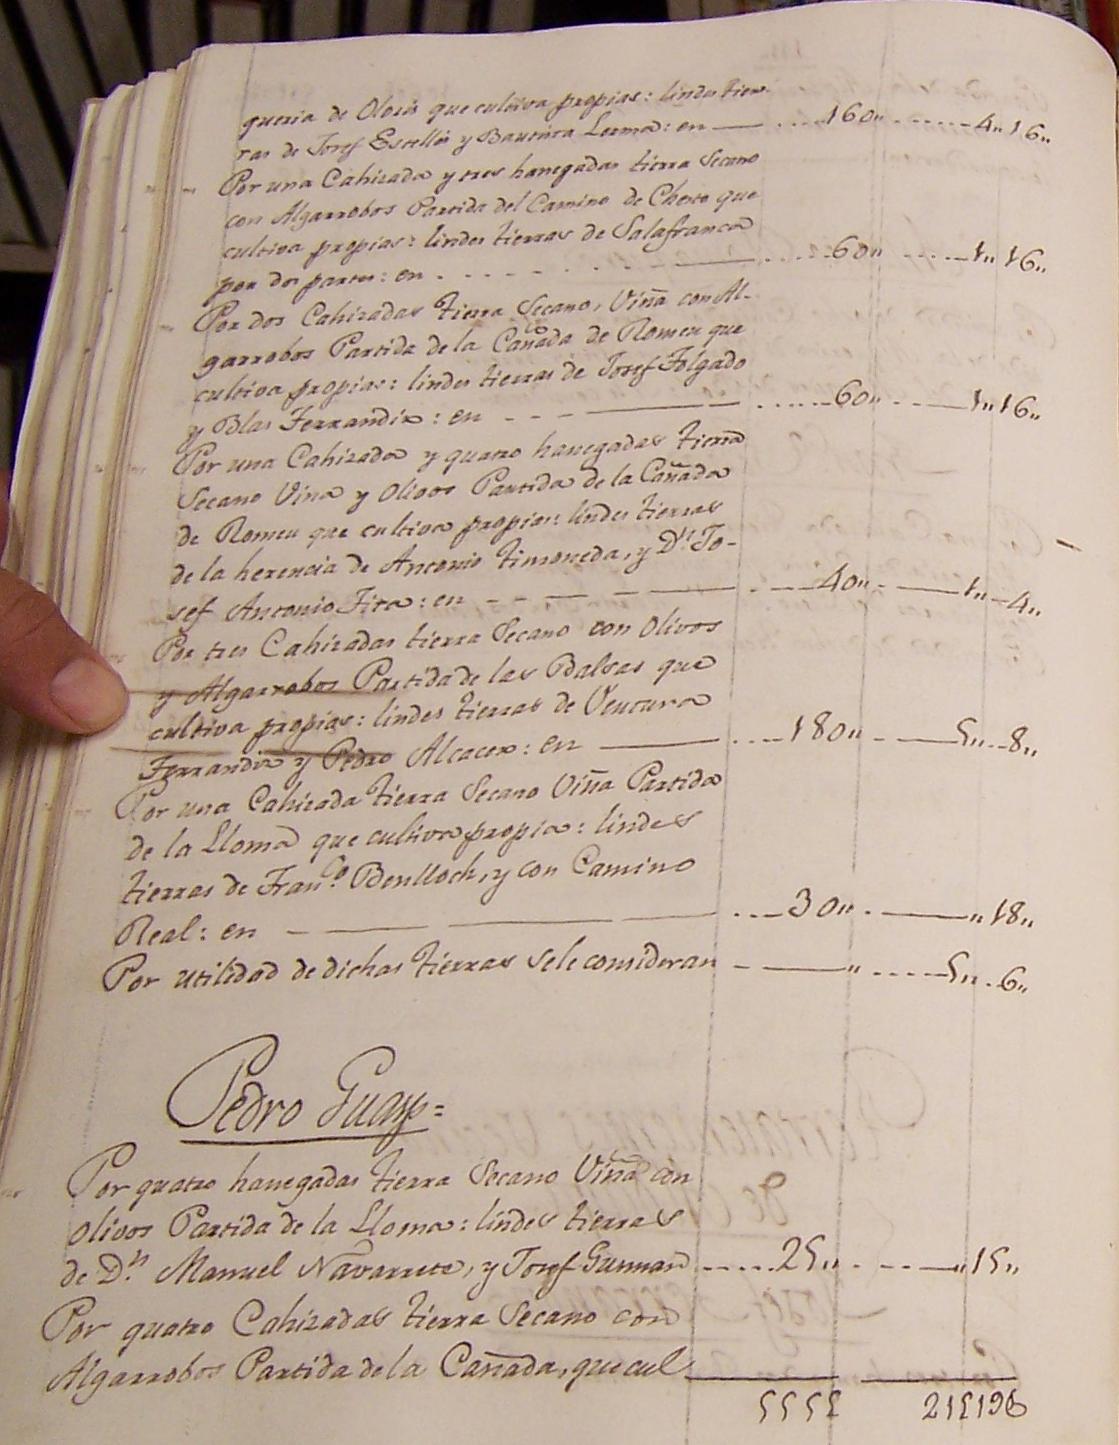 queria de Oloris que cultiva propias: lindes tier-
ras de Josef Estellés y Bautista Lerma: en — ....160,, ......4,,16,,
Por una Cahizada y tres hanegadas tierra Secano
con Algarrobos Partida del Camino de Cheste que
cultiva propias: lindes tierras de Salafranca
por dos partes: en ......60,, ......1,,16,,
Por dos Cahizadas tierra Secano, Viña con Al-
garrobos Partida de la Cañada de Romeu que
cultiva propias: lindes tierras de Josef Folgado
y Blas Ferrandix: en - - - — ......60,, - — 1,,16,,
Por una Cahizada y quatro hanegadas tierra
Secano Vina y Olivos Partida de la Cañada
de Romeu que cultiva propias: lindes tierras
de la herencia de Antonio Timoneda, y Dn. Jo-
sef Antonio Fita: en - - — ....40,, - — 1,,-4,,
Por tres Cahizadas tierra Secano con Olivos
y Algarrobos Partida de las Balsas que
cultiva propias: lindes tierras de Ventura
Ferrandix y Pedro Alcacer: en — ....180,, - — 5,,..8,,
Por una Cahizada tierra Secano Viña Partida
de la Lloma que cultiva propia: lindes
tierras de Franco. Benlloch, y con Camino
Real: en — ...30,, . — ,,18,,
Por utilidad de dichas tierras sele consideran - — ,, .....5,,.6,,
Pedro Guasp=
Por quatro hanegadas tierra Secano Viña con
Olivos Partida de la Lloma: lindes tierras
de Dn. Manuel Navarrete, y Josef Gumar .....25,, . - — ,,15,,
Por quatro Cahizadas tierra Secano con
Algarrobos Partida de la Cañada, que cul
5555